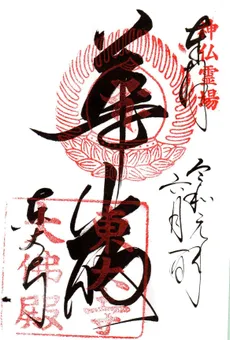 奉拝
神仏霊場
令和元年
六月一日
華厳
東大寺
東大寺
大佛殿